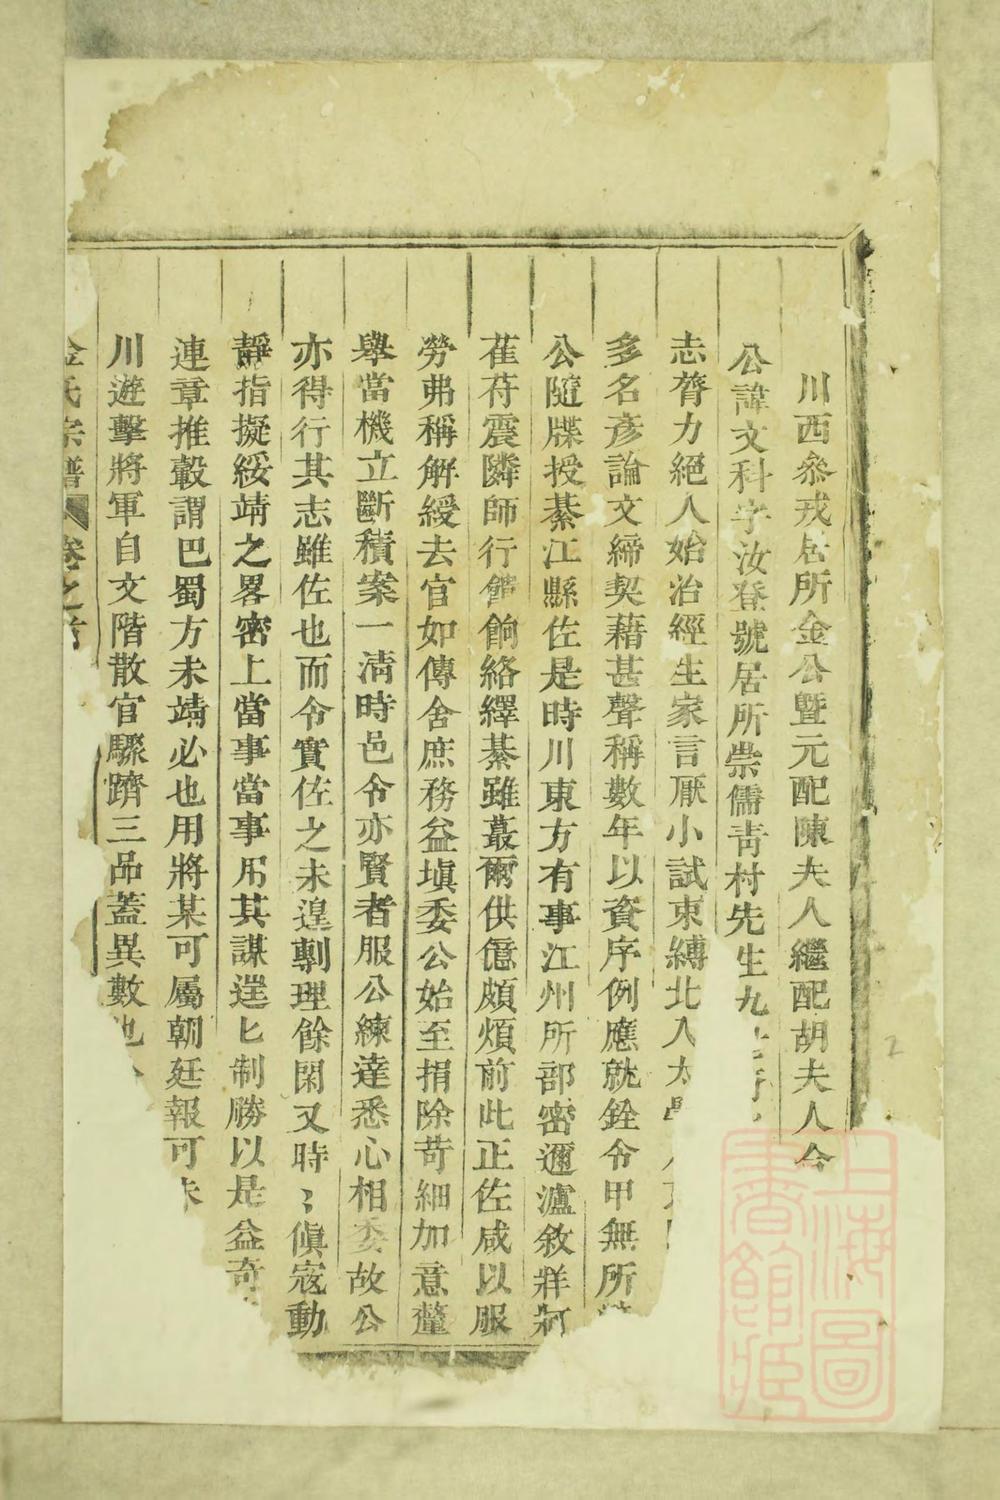 川西叅戎居所金公曁元配陳夫人繼配胡夫人合
公諱文科字汝登號居所崇儒靑村先生九
志膂力絕人始治經生家言厭小試束縛北入太
多名彥論文締契藉甚聲稱數年以資序例應就銓令甲無所
公隨牒授綦江縣佐是時川東方有事江州所部密邇瀘敘牂牁
萑苻震隣師行餽餉絡繹綦雖蕞爾供億頗煩前此正佐咸以服
勞弗稱解綬去官如傳舍庶務益塡委公始至捐除苛細加意釐
舉當機立斷積案一淸時邑令亦賢者服公練達悉心相委故公
亦得行其志雖佐也而令實佐之未遑剸理餘閑又時〻偵寇動
靜指擬綏靖之畧密上當事當事用其謀逞匕制勝以是益奇
連章推轂謂巴蜀方未靖必也用將某可屬朝廷報可未
川遊擊將軍自文階散官驟躋三品蓋異數也
金氏宗譜 卷之首
上海圖書館藏